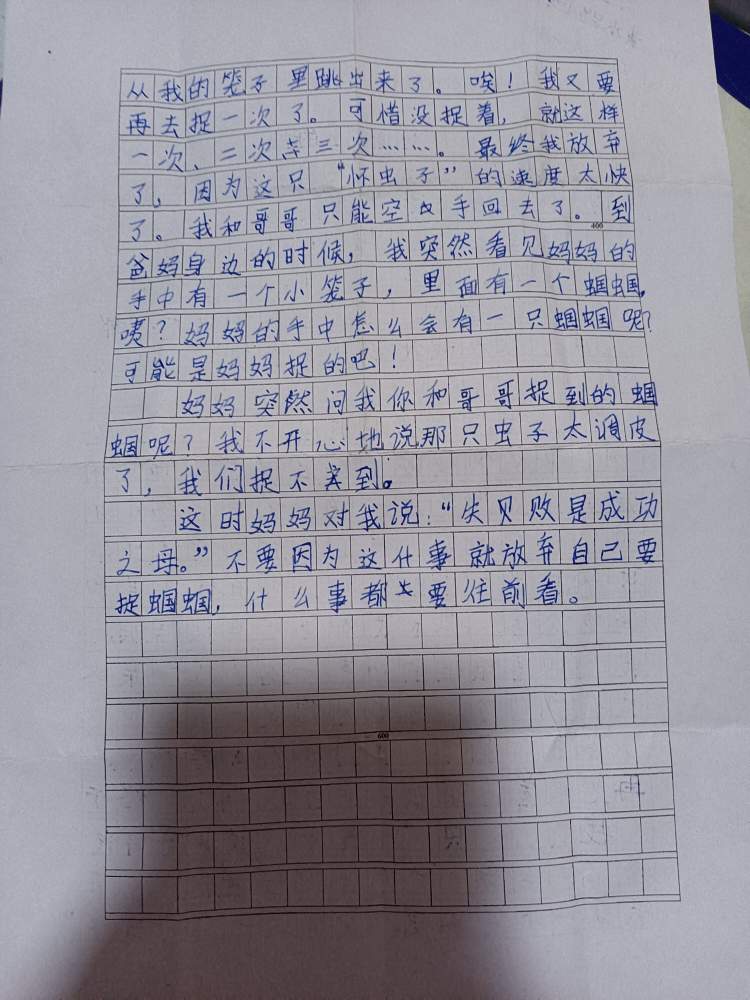 从我的笼子里跳出来了。唉！我又要
再去捉一次了。可惜没捉着，就这样
一次、二次三次……。最终我放弃
了，因为这只“怀虫子”的速度太快
了。我和哥哥只能空手回去了。到
400
爸妈身边的时候，我突然看见妈妈的
手中有一个小笼子，里面有一个蝈蝈。
咦？妈妈的手中怎么会有一只蝈蝈呢？
可能是妈妈捉的吧！
妈妈突然问我你和哥哥捉到的蝈
蝈呢？我不开心地说那只虫子太调皮
了，我们捉不到。
这时妈妈对我说：“失贝败是成功
之母。”不要因为这什事就放弃自己要
捉蝈蝈，什么事都要往前看。
600